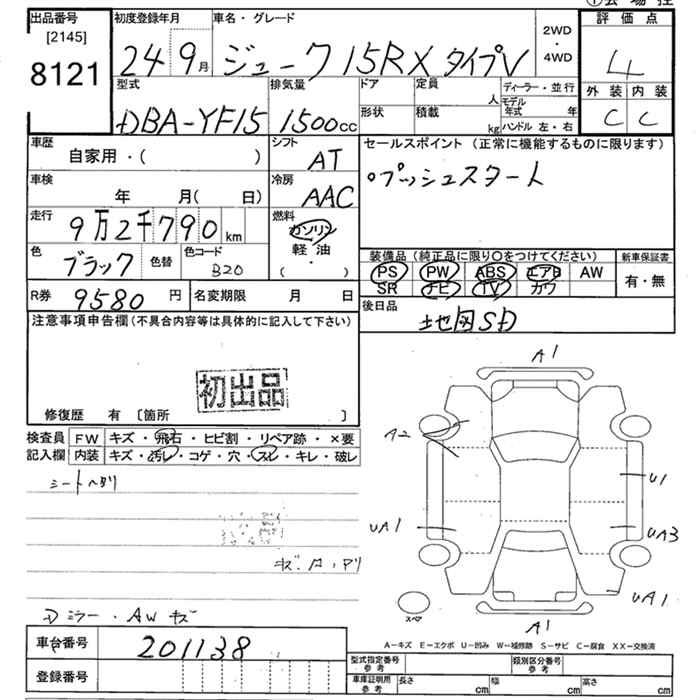 ①会場控
出品番号 初度登録年月 車名・グレード 2WD・4WD 評価点
[2145]
8121 24 9月 ジューク 15RX タイプV 4
型式 排気量 ドア 定員 人 ディーラー・並行 外装 内装
DBA-YF15 1500cc 形状 積載 kg モデル年式 年 ハンドル 左・右 C C
車歴 自家用・( ) シフト AT セールスポイント (正常に機能するものに限ります)
車検 年 月( 日) 冷房 AAC ○プッシュスタート
走行 9万2千790km 燃料 ガソリン 軽油 ( ・ )
色 ブラック 色替 色コード B20 装備品 (純正品に限り○をつけてください) 新車保証書
PS PW ABS エアB AW 有・無
SR ナビ TV カワ
R券 9580円 名変期限 月 日 後日品 地図SD
注意事項申告欄 (不具合内容等は具体的に記入して下さい)
初出品
修復歴 有 [箇所 ]
検査員記入欄 FW キズ・飛石・ヒビ割・リペア跡・×要
内装 キズ・汚レ・コゲ・穴・スレ・キレ・破レ
シートヘタリ
キズ・
ミラー・AWキズ
A1
A2
U1
UA1 UA3
UA1
スペア
A1
A-キズ E-エクボ U-凹み W-補修跡 S-サビ C-腐食 XX-交換済
車台番号 201138
登録番号
型式指定番号 参考 類別区分番号 参考
車庫証明用 参考 長さ cm 幅 cm 高さ cm